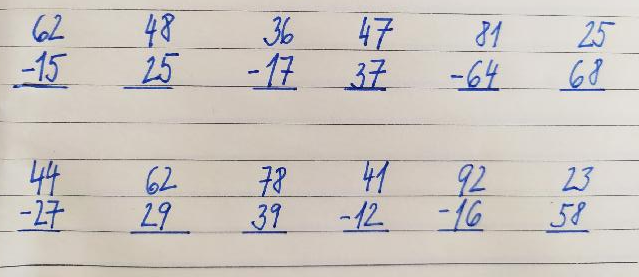 62 48 36 47 81 25
-15 25 -17 37 -64 68
44 62 78 41 92 23
-27 29 39 -12 -16 58